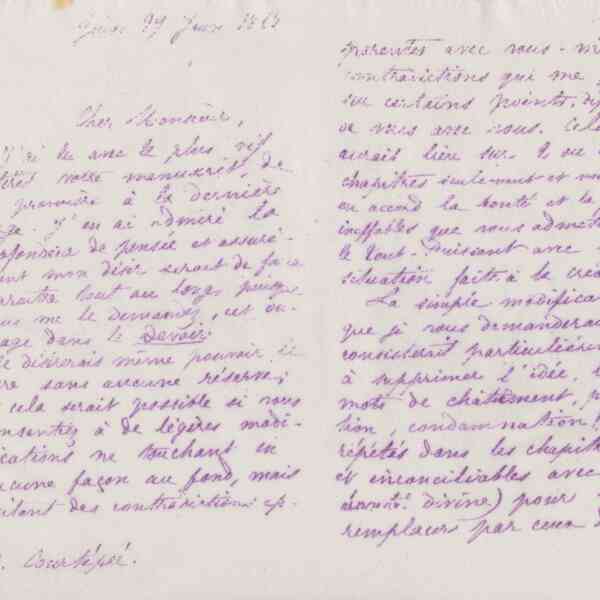 Juin
Cher Monsieur,
lu avec le plus vif
votre manuscrit, de
première à la dernière
J'en ai admiré la
de pensée et assuré-
mon désir serait de faire
tout au long, puisque
me le demandez, cet ou-
dans le Devoir.
désirerais même pouvoir le
sans aucune réserve;
cela serait possible si vous
à de légères modi-
ications ne touchant en
aucune façon au fond, mais
des contradictions ap-
Courtépée.
parentes avec vous-m
contradictions qui me
sur certains points,
de vues avec vous. Cela
aurait lieu sur 2 ou
chapitres seulement et
en accord la bonté et la
ineffables que vous admet
le Tout-Puissant avec
situation faite à la
La simple modifica
que je vous demanderai
consisterait particulièrem
à supprimer l'idée,
mots de châtiment, p
tion, condamnation
répétés dans les chapit
et inconciliables avec
divine) pour
remplacer par ceux d